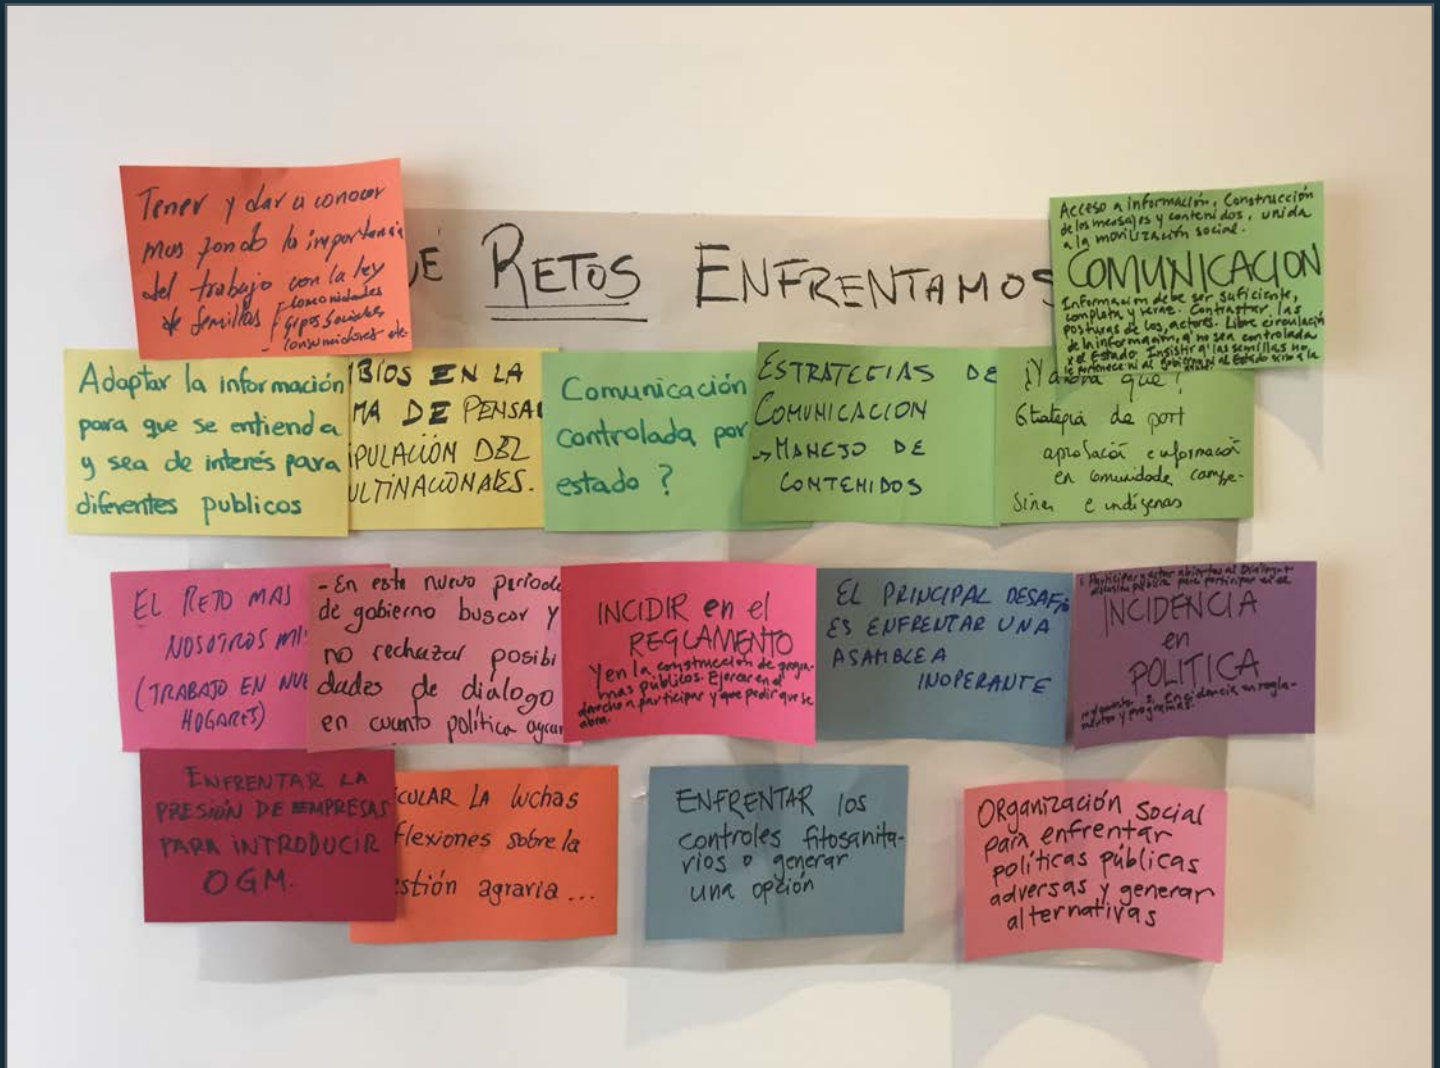 Tener y dar a conocer
mas fondo la importancia
del trabajo con la ley
de semillas - comonidades
- grpos sociales
- consumidores etc
É RETOS ENFRENTAMOS
Acceso a información, Construcción
de los mensajes y contenidos, unida
a la movilización social.
COMUNICACION
Información debe ser suficiente,
completa y veraz. Contrastar las
posturas de los actores. Libre circulación
de la información, q' no sea controlada
x el Estado. Insistir q' las semillas no
le pertenece ni al gobierno ni al Estado sino a la
Adaptar la información
para que se entienda
y sea de interés para
diferentes publicos
BIOS EN LA
MA DE PENSA
IPULACIÓN DEL
ULTINACIONALES.
Comunicación
controlada por
estado ?
ESTRATEGIAS DE
COMUNICACION
→ MANEJO DE
CONTENIDOS
¿Y ahora que?
de port
aprobación e información
en comunidade campe-
sinas e indígenas
EL RETO MAS
NOSOTROS MI
(TRABAJO EN NUE
HOGARES)
- En este nuevo periodo
de gobierno buscar y
no rechazar posibi
dades de diálogo
en cuanto política agrar
INCIDIR en el
REGLAMENTO
Y en la construcción de progra-
mas públicos. Ejercer en el
derecho a participar y que pedir que se
abra.
EL PRINCIPAL DESAFÍO
ES ENFRENTAR UNA
ASAMBLEA
INOPERANTE
Participar y estar abiertos al Dialogo +
discusión pública para participar en el
INCIDENCIA
en
POLITICA
2. Incidencia en regla-
mentos y programas.
ENFRENTAR LA
PRESIÓN DE EMPRESAS
PARA INTRODUCIR
OGM.
CULAR LA luchas
flexiones sobre la
stión agraria ...
ENFRENTAR los
controles fitosanita-
rios o generar
una opción
ORGANIZACIÓN Social
para enfrentar
políticas públicas
adversas y generar
alternativas